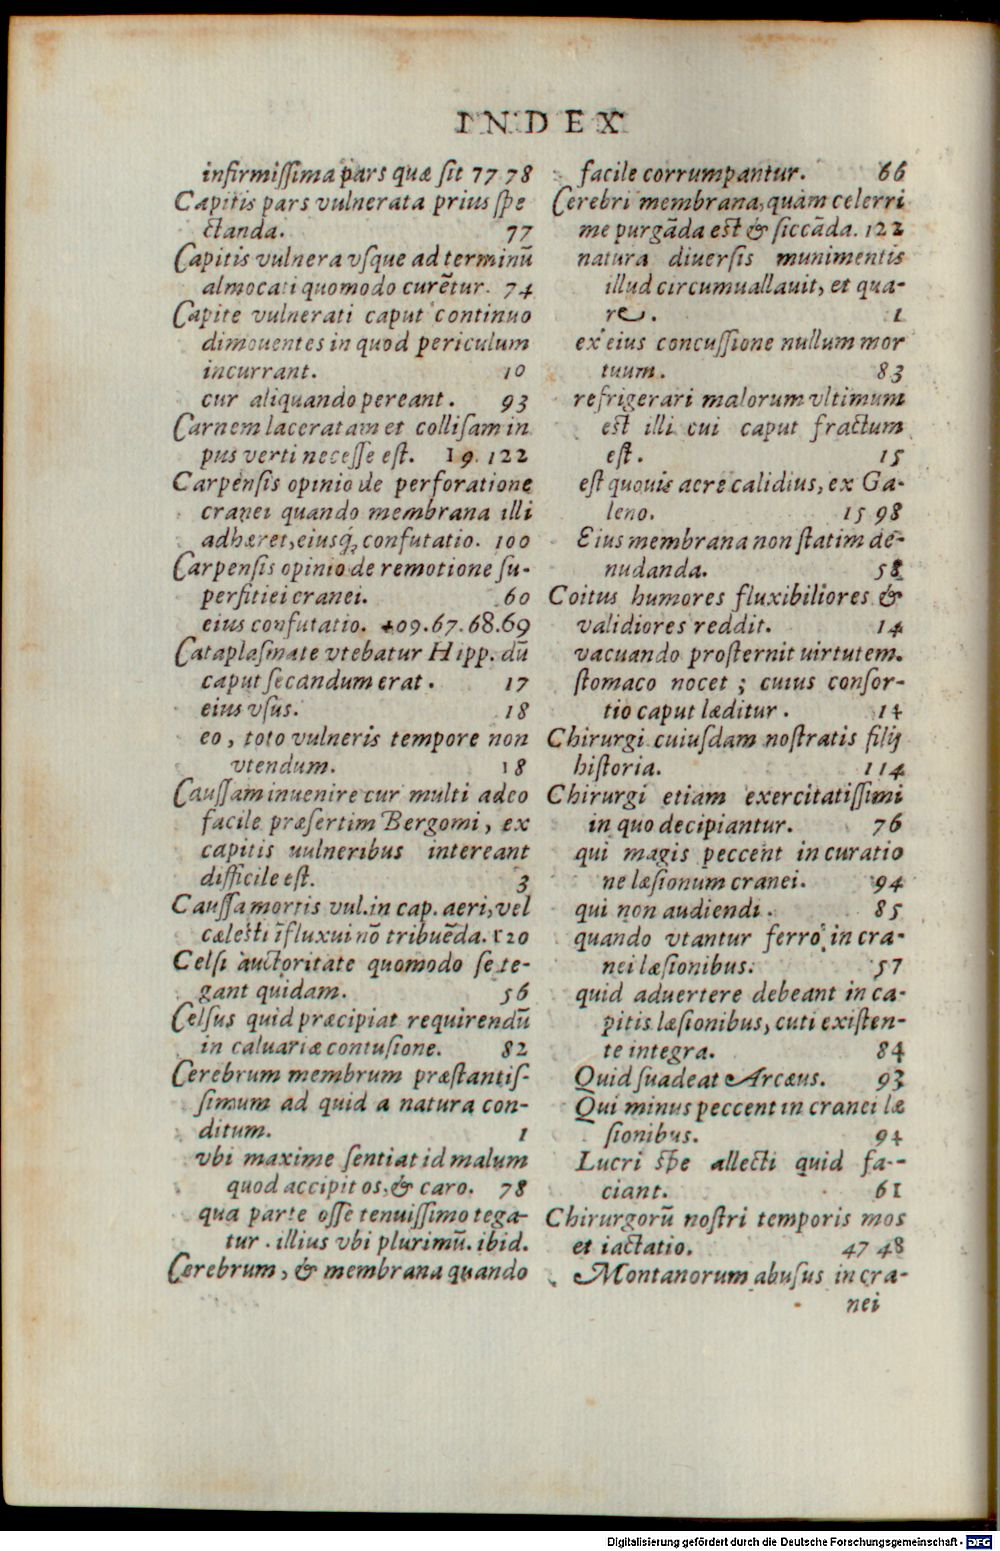 INDEX
infirmiſſima pars quæ ſit 77 78
Capitis pars vulnerata prius ſpe
ctanda. 77
Capitis vulnera vſque ad terminū
almocati quomodo curētur. 74
Capite vulnerati caput continuo
dimouentes in quod periculum
incurrant. 10
cur aliquando pereant. 93
Carnem laceratam et colliſam in
pus verti neceſſe eſt. 19. 122
Carpenſis opinio de perforatione
cranei quando membrana illi
adhæret, eiusq́; confutatio. 100
Carpenſis opinio de remotione ſu-
perfitiei cranei. 60
eius confutatio. 09. 67. 68. 69
Cataplaſmate vtebatur Hipp. dū
caput ſecandum erat. 17
eius vſus. 18
eo, toto vulneris tempore non
vtendum. 18
Cauſſam inuenire cur multi adeo
facile præſertim Bergomi, ex
capitis uulneribus intereant
difficile eſt. 3
Cauſſa mortis vul. in cap. aeri, vel
cæleſti īfluxui nō tribuēda. 120
Celſi auctoritate quomodo ſe te-
gant quidam. 56
Celſus quid præcipiat requirendū
in caluariæ contuſione. 82
Cerebrum membrum præſtantiſ-
ſimum ad quid a natura con-
ditum. 1
vbi maxime ſentiat id malum
quod accipit os, & caro. 78
qua parte oſſe tenuiſſimo tega-
tur. illius vbi plurimū. ibid.
Cerebrum, & membrana quando
facile corrumpantur. 66
Cerebri membrana, quàm celerri
me purgāda eſt & ſiccāda. 122
natura diuerſis munimentis
illud circumuallauit, et qua-
re. 1
ex eius concuſſione nullum mor
tuum. 83
refrigerari malorum vltimum
eſt illi cui caput fractum
eſt. 15
eſt quouis aere calidius, ex Ga-
leno. 15 98
Eius membrana non ſtatim de-
nudanda. 58
Coitus humores fluxibiliores &
validiores reddit. 14
vacuando proſternit uirtutem.
ſtomaco nocet; cuius conſor-
tio caput læditur. 14
Chirurgi cuiuſdam noſtratis filij
hiſtoria. 114
Chirurgi etiam exercitatiſſimi
in quo decipiantur. 76
qui magis peccent in curatio
ne læſionum cranei. 94
qui non audiendi. 85
quando vtantur ferro in cra-
nei læſionibus. 57
quid aduertere debeant in ca-
pitis læſionibus, cuti exiſten-
te integra. 84
Quid ſuadeat Arcæus. 93
Qui minus peccent in cranei læ
ſionibus. 94
Lucri ſpe allecti quid fa-
ciant. 61
Chirurgorū noſtri temporis mos
et iactatio. 47 48
Montanorum abuſus in cra-
nei
Digitalisierung gefördert durch die Deutsche Forschungsgemeinschaft - DFG